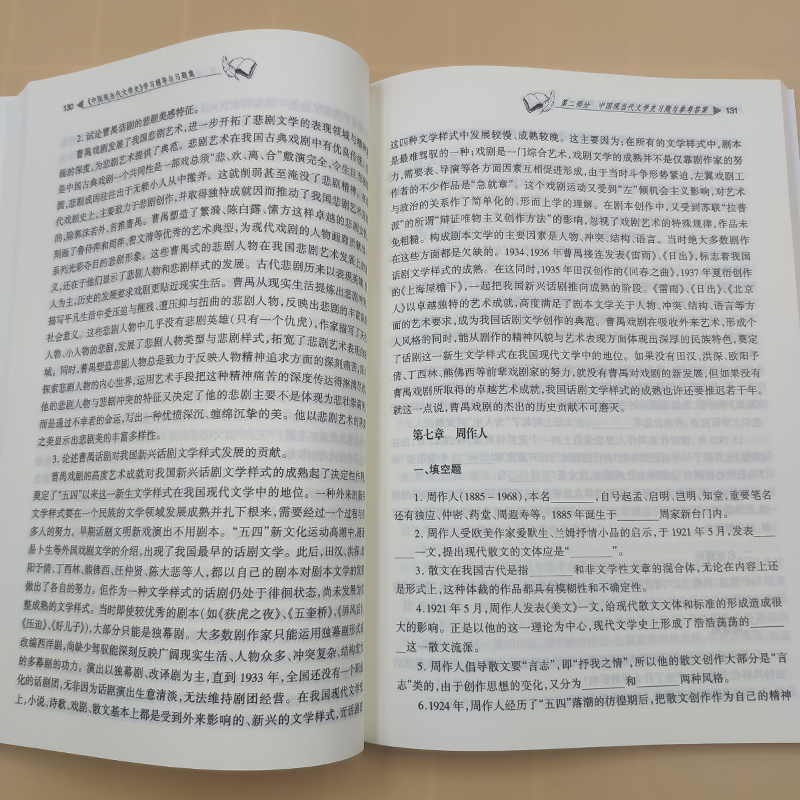 130 ◀《中国现当代文学史》学习辅导与习题集
2. 试论曹禺话剧的悲剧美感特征。
曹禺戏剧发展了我国悲剧艺术，进一步开拓了悲剧文学的表现领域与精
画的深度，为悲剧艺术提供了典范。悲剧艺术在我国古典戏剧中有优良传统，
是中国古典戏剧一个共同性是一部戏总须“悲、欢、离、合”敷演完全，令生旦
团圆，悲剧或因往往出于无赖小人从中撒弄。这就削弱甚至淹没了悲剧精神。
代戏剧史上，主要致力于悲剧创作，并取得独特成就因而推动了我国悲剧艺术
的，除郭沫若外，首推曹禺。曹禺塑造了繁漪、陈白露、愫方这样卓越的悲剧
刻画了鲁侍萍和周萍、曾文清等优秀的艺术典型，为现代戏剧的人物画廊贡献
系列光彩夺目的悲剧形象。这些曹禺式的悲剧人物在我国悲剧艺术发展上的
义，还在于他们显示了悲剧人物和悲剧样式的发展。古代悲剧历来以表现英雄
人为主，历史的发展要求戏剧更贴近现实生活。曹禺从现实生活提炼出悲剧
描写平凡生活中受压迫与摧残、遭压抑与扭曲的悲剧人物，反映出悲剧的丰富
社会意义。这些悲剧人物中几乎没有悲剧英雄（只有一个仇虎），作家描写了
人物、小人物的悲剧，发展了悲剧人物类型与悲剧样式，拓宽了悲剧艺术表现
域。同时，曹禺塑造悲剧人物总是致力于反映人物精神追求方面的深刻痛苦，
探索悲剧人物的内心世界，运用艺术手段把这种精神痛苦的深度传达得淋漓
他的悲剧人物与悲剧冲突的特征又决定了他的悲剧主要不是体现为悲壮崇高
而是通过不幸者的命运，写出一种忧愤深沉、缠绵沉挚的美。他以悲剧艺术的
之美显示出悲剧美的丰富多样性。
3. 论述曹禺话剧对我国新兴话剧文学样式发展的贡献。
曹禺戏剧的高度艺术成就对我国新兴话剧文学样式的成熟起了决定性作用
奠定了“五四”以来这一新生文学样式在我国现代文学中的地位。一种外来的新
学样式要在一个民族的文学领域发展成熟并扎下根来，需要经过一个过程与
多人的努力。早期话剧文明新戏演出不用剧本。“五四”新文化运动高潮中，随
易卜生等外国戏剧文学的介绍，出现了我国最早的话剧文学。此后，田汉、洪深、
阳予倩、丁西林、熊佛西、汪仲贤、陈大悲等人，都以自己的剧本对剧本文学的发
做出了各自的努力。但作为一种文学样式的话剧仍处于徘徊状态，尚未发展为
整成熟的文学样式。当时即使较优秀的剧本（如《获虎之夜》、《五奎桥》、《屏风后》
《压迫》、《好儿子》），大部分只能是独幕剧。大多数剧作家只能运用独幕剧形式
改编西洋剧，尚缺少驾驭能深刻反映广阔现实生活、人物众多、冲突复杂、结构
的多幕剧的功力。演出以独幕剧、改译剧为主，直到 1933 年，全国还没有一个职
化的话剧团，无非因为话剧演出生意清淡，无法维持剧团经营。在我国现代文学
上，小说、诗歌、戏剧、散文基本上都是受到外来影响的、新兴的文学样式，而话剧
第二部分 中国现当代文学史习题与参考答案 ▶ 131
这四种文学样式中发展较慢、成熟较晚。这主要因为：在所有的文学样式中，剧本
是最难驾驭的一种；戏剧是一门综合艺术，戏剧文学的成熟并不是仅靠剧作家的努
力，需要表、导演等各方面因素互相促进形成，由于当时斗争形势紧迫，左翼戏剧工
作者的不少作品是“急就章”。这个戏剧运动又受到“左”倾机会主义影响，对艺术
与政治的关系作了简单化的、形而上学的理解。在剧本创作中，又受到苏联“拉普
派”的所谓“辩证唯物主义创作方法”的影响，忽视了戏剧艺术的特殊规律，作品未
免粗糙。构成剧本文学的主要因素是人物、冲突、结构、语言。当时绝大多数剧作
在这些方面都是欠缺的。1934、1936 年曹禺接连发表《雷雨》、《日出》，标志着我国
话剧文学样式的成熟。在这同时，1935 年田汉创作的《回春之曲》，1937 年夏衍创作
的《上海屋檐下》，一起把我国新兴话剧推向成熟的阶段。《雷雨》、《日出》、《北京
人》以卓越独特的艺术成就，高度满足了剧本文学关于人物、冲突、结构、语言等方
面的艺术要求，成为我国话剧文学创作的典范。曹禺戏剧在吸收外来艺术，形成个
人风格的同时，能从剧作的精神风貌与艺术表现方面体现出深厚的民族特色，奠定
了话剧这一新生文学样式在我国现代文学中的地位。如果没有田汉、洪深、欧阳予
倩、丁西林、熊佛西等前辈戏剧家的努力，就没有曹禺对戏剧的新发展，但如果没有
曹禺戏剧所取得的卓越艺术成就，我国话剧文学样式的成熟也许还要推迟若干年。
就这一点说，曹禺戏剧的杰出的历史贡献不可磨灭。
第七章 周作人
一、填空题
1. 周作人（1885－1968），本名______，自号起孟、启明、岂明、知堂，重要笔名
还有独应、仲密、药堂、周遐寿等。1885 年诞生于______周家新台门内。
2. 周作人受欧美作家爱默生、兰姆抒情小品的启示，于 1921 年 5 月，发表___
___一文，提出现代散文的文体应是“______”。
3. 散文在我国古代是指______和非文学性文章的混合体，无论在内容上还
是形式上，这种体裁的作品都具有模糊性和不确定性。
4. 1921 年 5 月，周作人发表《美文》一文，给现代散文文体和标准的形成造成很
大的影响。正是以他的这一理论为中心，现代文学史上形成了浩浩荡荡的_____
_这一散文流派。
5. 周作人倡导散文要“言志”，即“抒我之情”，所以他的散文创作大部分是“言
志”类的，由于创作思想的变化，又分为______和______两种风格。
6. 1924 年，周作人经历了“五四”落潮的彷徨期后，把散文创作作为自己的精神